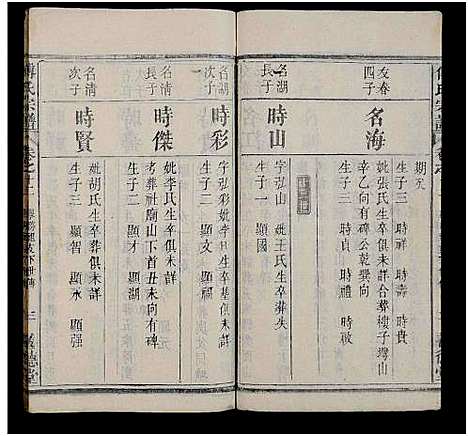 期友
生子三 時祥 時壽 時貴
友春
四子
名海
妣張氏生卒俱未詳合葬樓子灣山
辛乙向有碑公乾巽向
生子三 時貞 時體 時
名湖
長子
時山
字弘
妣王氏生卒葬失
生子一 顯國
名湖
次子
時彩
字弘
妣李氏生卒葬俱未詳
生子二 顯文 顯
名清
長子
時傑
妣李氏生卒俱未詳
考葬社廟山下首丑未向有碑
生子二 顯才 顯湖
名清
次子
時賢
妣胡氏生卒葬俱未詳
生子三 顯智 顯永 顯强
傅氏宗譜
卷之
二
德堂